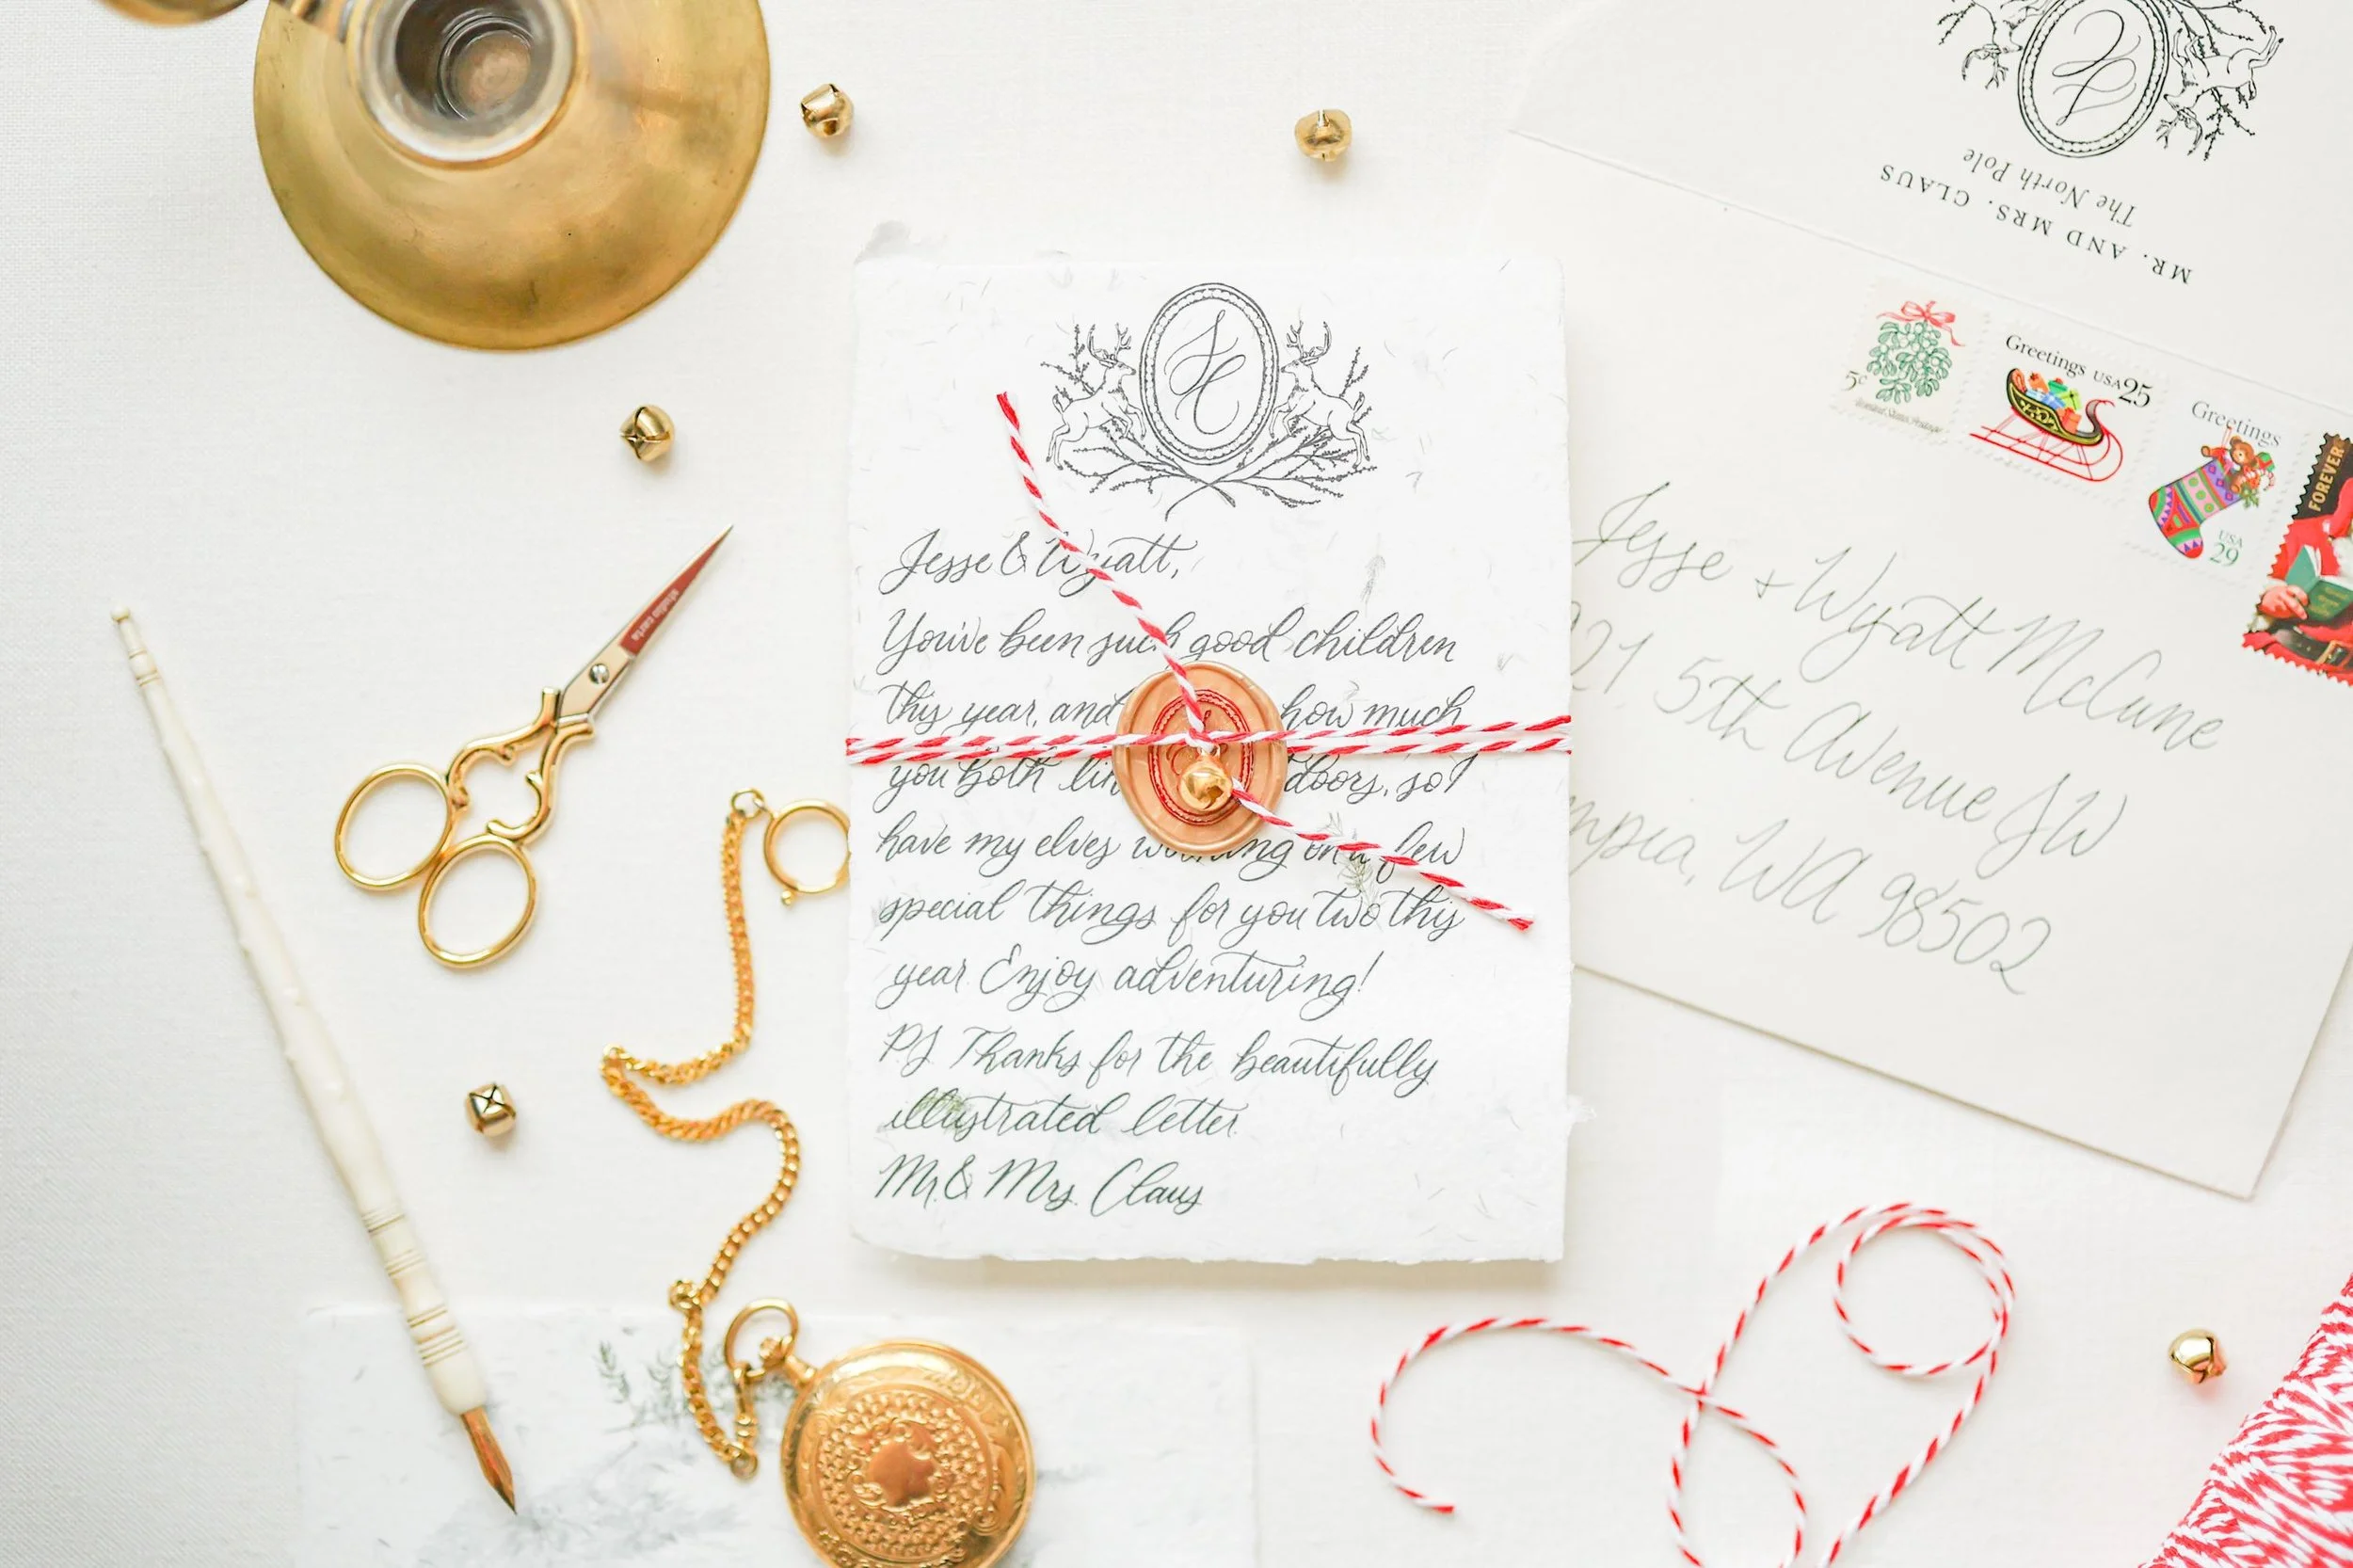 Jesse & Wyatt,
You've been such good children
this year, and how much
you both doors, so I
have my elves working on a few
special things for you two this
year. Enjoy adventuring!
PS Thanks for the beautifully
illustrated letter
Mr. & Mrs. Claus
MR. AND MRS. CLAUS
The North Pole
5c
Greetings USA 25
Greetings
USA
29
FOREVER
Jesse + Wyatt McCune
21 5th Avenue SW
mpia, WA 98502
studio carta